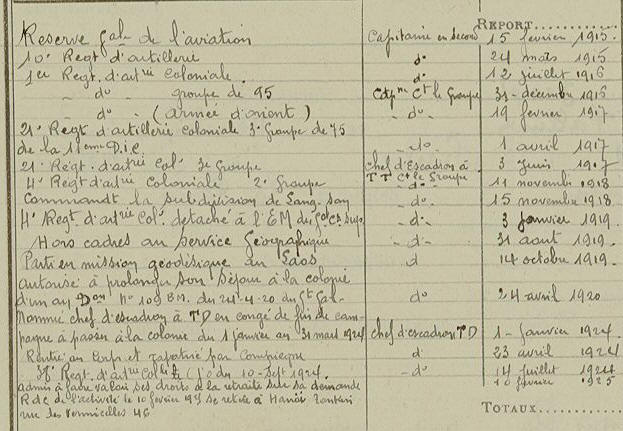 REPORT
Reserve gale de l'aviation Capitaine en second 15 fevrier 1915.
10e Regt d'artillerie do 24 mars 1915
1er Regt. d'artrie Coloniale. do 12 juillet 1916
- do - groupe de 95 Capne Ct le Groupe 31 - décembre 1916
do - (armée d'orient) - do - 19 fevrier 1917
21e Regt d'artillerie coloniale 3e Groupe de 75
de la 11eme D.i.C. - do - 1 avril 1917
21e Regt. d'artrie Cole 3e Groupe chef d'Escadron à 3 Juin 1917
4e Regt d'artrie Coloniale 2e Groupe TT Ct le Groupe - do - 11 novembre 1918
Commandt la subdivision de Lang-Son - do - 15 novembre 1918
4e Regt d'artrie Cole. detaché à l'EM du Gal Ct Sup. - do - 3 janvier 1919.
Hors cadres au service Géographique - do - 31 aout 1919.
Parti en mission géodésique au Laos d 14 octobre 1919.
autorisé à prolonger son séjour à la colonie
d'un an Don No 109 BM. du 24-4-20 du Gt Gal do 24 avril 1920
Nommé chef d'escadron à TD en congé de fin de cam-
pagne à passer à la colonie du 1 janvier au 31 mars 1924 chef d'escadron TD 1 - janvier 1924
Rentré au Corps et rapatrié par Compiegne d 23 avril 1924
38e Regt. d'artrie Colle (J.o du 10-Sept 1924. - do - 14 juillet 1924
admis à faire valoir ses droits à la retraite sur sa demande 10 fevrier 1925
R.d.C de l'activité le 10 fevrier se retire à Hanoï Tonkin
rue les Vermicelles 46
TOTAUX